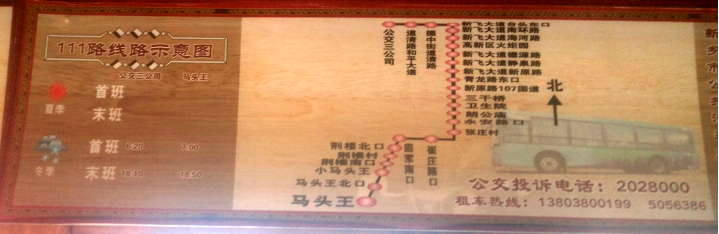 111路线路示意图
公交三公司 马头王
夏季 首班
末班
冬季 首班 6:20 7:00
末班 18:10 18:50
公交三公司
道清路和平大道
振中街道清路
新飞大道台头东口
新飞大道南环路
新飞大道海河路
高新区火炬园
新飞大道德源路
新飞大道静泉路
新飞大道新原路
青龙路东口
新原路107国道
三干桥
卫生院
朗公庙
永安路口
张庄村
崔庄路口
固军南口
荆楼北口
荆楼村
荆楼南口
小马头王
马头王北口
马头王
北
公交投诉电话：2028000
租车热线：13803800199 5056386